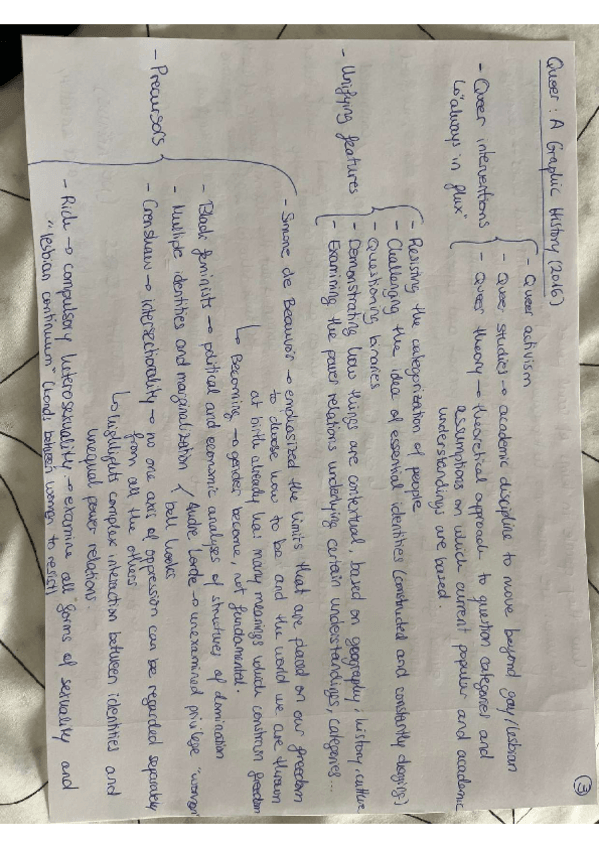 3
Queer: A Graphic History (2016)
- Queer interventions
↳ "always in flux"
- Queer activism
- Queer studies → academic discipline to move beyond gay/lesbian
- Queer theory → theoretical approach to question categories and
assumptions on which current popular and academic
understandings are based.
- Unifying features
- Resisting the categorization of people
- Challenging the idea of essential identities (constructed and constantly changing)
- Questioning binaries
- Demonstrating how things are contextual, based on geography, history, culture
- Examining the power relations underlying certain understandings, categories...
- Precursors
- Simone de Beauvoir → emphasized the limits that are placed on our freedom
to choose how to be and the world we are thrown
at birth already has many meanings which constrain freedom
↳ Becoming → gender become, not fundamental.
- Black feminists → political and economic analyses of structures of domination
- Multiple identities and marginalization
Audre Lorde → unexamined privilege "woman"
bell hooks
- Crenshaw → intersectionality → no one axis of oppression can be regarded separately
from all the others
↳ highlights complex interaction between identities and
unequal power relations.
- Rich → compulsory heterosexuality → examine all forms of sexuality and
"lesbian continuum" (bonds between women to resist)